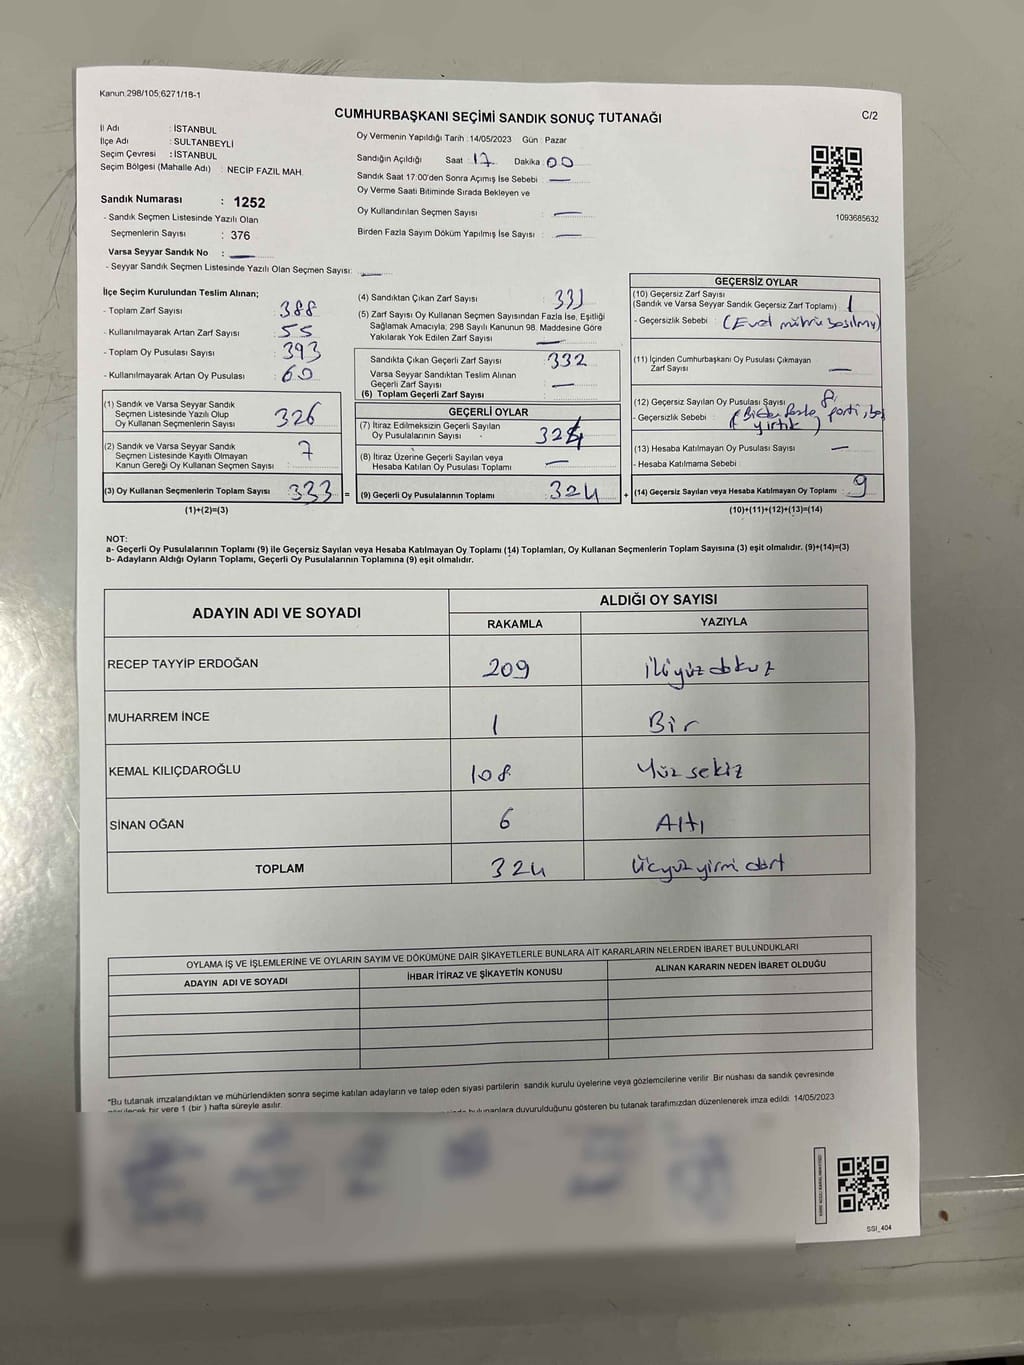 Kanun.298/105,6271/18-1
CUMHURBAŞKANI SEÇİMİ SANDIK SONUÇ TUTANAĞI
C/2
İl Adı : İSTANBUL
İlçe Adı : SULTANBEYLİ
Seçim Çevresi : İSTANBUL
Seçim Bölgesi (Mahalle Adı) : NECİP FAZIL MAH.
Sandık Numarası : 1252
- Sandık Seçmen Listesinde Yazılı Olan
Seçmenlerin Sayısı : 376
Varsa Seyyar Sandık No : —
- Seyyar Sandık Seçmen Listesinde Yazılı Olan Seçmen Sayısı: —
Oy Vermenin Yapıldığı Tarih :14/05/2023 Gün : Pazar
Sandığın Açıldığı Saat : 17 Dakika : 00
Sandık Saat 17:00'den Sonra Açımış İse Sebebi : —
Oy Verme Saati Bitiminde Sırada Bekleyen ve
Oy Kullandırılan Seçmen Sayısı : —
Birden Fazla Sayım Döküm Yapılmış İse Sayısı : —
1093685632
İlçe Seçim Kurulundan Teslim Alınan;
- Toplam Zarf Sayısı : 388
- Kullanılmayarak Artan Zarf Sayısı : 55
- Toplam Oy Pusulası Sayısı : 393
- Kullanılmayarak Artan Oy Pusulası : 60
(1) Sandık ve Varsa Seyyar Sandık
Seçmen Listesinde Yazılı Olup
Oy Kullanan Seçmenlerin Sayısı : 326
(2) Sandık ve Varsa Seyyar Sandık
Seçmen Listesinde Kayıtlı Olmayan
Kanun Gereği Oy Kullanan Seçmen Sayısı : 7
(3) Oy Kullanan Seçmenlerin Toplam Sayısı : 333 =
(1)+(2)=(3)
(4) Sandıktan Çıkan Zarf Sayısı :
(5) Zarf Sayısı Oy Kullanan Seçmen Sayısından Fazla İse, Eşitliği
Sağlamak Amacıyla; 298 Sayılı Kanunun 98. Maddesine Göre
Yakılarak Yok Edilen Zarf Sayısı : —
Sandıkta Çıkan Geçerli Zarf Sayısı : 332
Varsa Seyyar Sandıktan Teslim Alınan
Geçerli Zarf Sayısı : —
(6) Toplam Geçerli Zarf Sayısı :
GEÇERLİ OYLAR
(7) İtiraz Edilmeksizin Geçerli Sayılan
Oy Pusulalarının Sayısı : 324
(8) İtiraz Üzerine Geçerli Sayılan veya
Hesaba Katılan Oy Pusulası Toplamı : —
(9) Geçerli Oy Pusulalarının Toplamı : 324 +
GEÇERSİZ OYLAR
(10) Geçersiz Zarf Sayısı
(Sandık ve Varsa Seyyar Sandık Geçersiz Zarf Toplamı) : 1
- Geçersizlik Sebebi : (Evet mührü basılmış)
(11) İçinden Cumhurbaşkanı Oy Pusulası Çıkmayan
Zarf Sayısı : —
(12) Geçersiz Sayılan Oy Pusulası Sayısı : 8
- Geçersizlik Sebebi : (Birden fazla parti, boş
yırtık)
(13) Hesaba Katılmayan Oy Pusulası Sayısı : —
- Hesaba Katılmama Sebebi
(14) Geçersiz Sayılan veya Hesaba Katılmayan Oy Toplamı : 9
(10)+(11)+(12)+(13)=(14)
NOT:
a- Geçerli Oy Pusulalarının Toplamı (9) ile Geçersiz Sayılan veya Hesaba Katılmayan Oy Toplamı (14) Toplamları, Oy Kullanan Seçmenlerin Toplam Sayısına (3) eşit olmalıdır. (9)+(14)=(3)
b- Adayların Aldığı Oyların Toplamı, Geçerli Oy Pusulalarının Toplamına (9) eşit olmalıdır.
ADAYIN ADI VE SOYADI ALDIĞI OY SAYISI
RAKAMLA YAZIYLA
RECEP TAYYİP ERDOĞAN 209 ikiyüz dokuz
MUHARREM İNCE 1 Bir
KEMAL KILIÇDAROĞLU 108 Yüz sekiz
SİNAN OĞAN 6 Altı
TOPLAM 324 Üçyüz yirmi dört
OYLAMA İŞ VE İŞLEMLERİNE VE OYLARIN SAYIM VE DÖKÜMÜNE DAİR ŞİKAYETLERLE BUNLARA AİT KARARLARIN NELERDEN İBARET BULUNDUKLARI
ADAYIN ADI VE SOYADI İHBAR İTİRAZ VE ŞİKAYETİN KONUSU ALINAN KARARIN NEDEN İBARET OLDUĞU
*Bu tutanak imzalandıktan ve mühürlendikten sonra seçime katılan adayların ve talep eden siyasi partilerin sandık kurulu üyelerine veya gözlemcilerine verilir. Bir nüshası da sandık çevresinde
görülecek bir yere 1 (bir ) hafta süreyle asılır. bulunanlara duyurulduğunu gösteren bu tutanak tarafımızdan düzenlenerek imza edildi. 14/05/2023
SSI_404